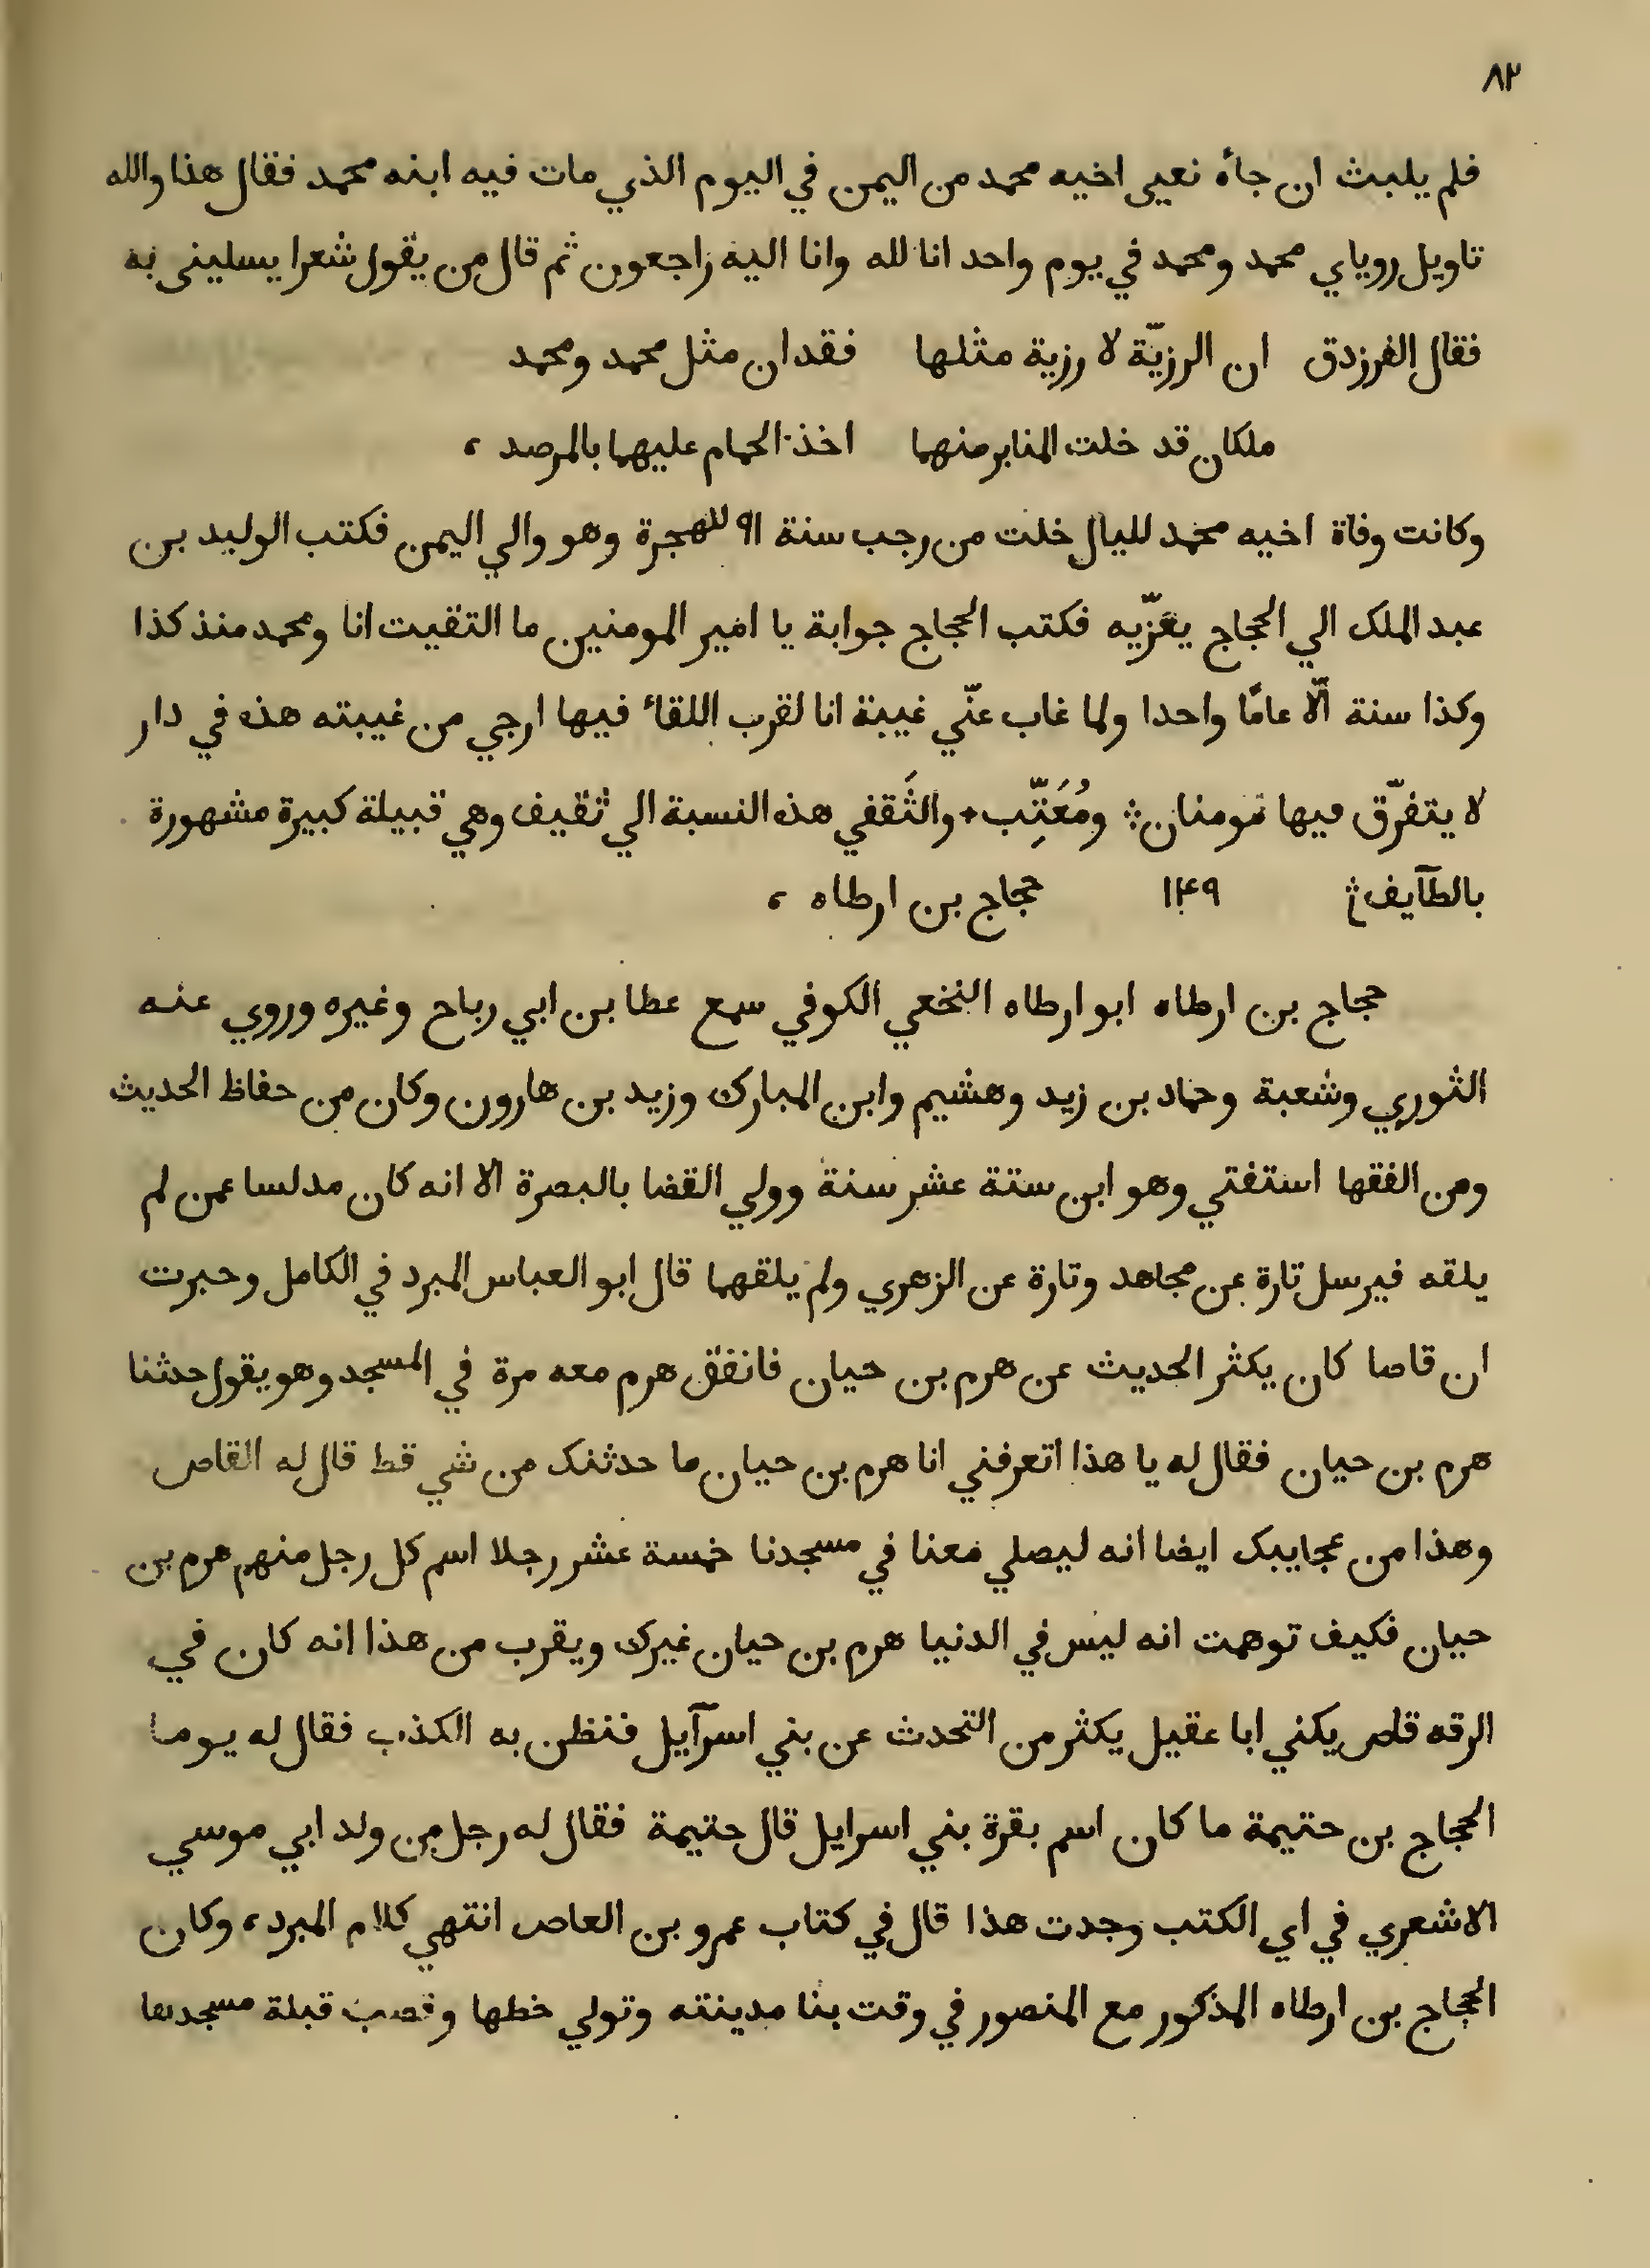 ٨٢
فلم يلبث ان جاءٔه نعيى اخيه محمد من اليمن في اليوم الذي مات فيه ابنه محمد فقال هذا والله
تاويل روياي محمد ومحمد في يوم واحد انا لله وانا اليه راجعون ثم قال من يقول شعرا يسلينى به
فقال الفرزدق ان الرزيّة لا رزية مثلها فقدان مثل محمد ومحمد
ملكان قد خلت المنابر منهما اخذ الحمام عليهما بالمرصد ،
وكانت وفاة اخيه محمد لليال خلت من رجب سنة ٩١ للهجرة وهو والي اليمن فكتب الوليد بن
عبد الملك الي الحجاج يعّزيه فكتب الحجاج جوابة يا امير المومنين ما التقيت انا ومحمد منذ كذا
وكذا سنة الّا عامًا واحدا ولما غاب عنّي غيبة انا لقرب اللقاءٔ فيها ارجي من غيبته هذه في دار
لا يتفرّق فيها مومنان ؞ ومُعَتِّب + والثَقفي هذه النسبة الي ثقيف وهي قبيلة كبيرة مشهورة
بالطآيف ؞ ١٤٩ حجاج بن ارطاه ،
حجاج بن ارطاه ابو ارطاه النخعي الكوفي سمع عطا بن ابي رباح وغيره وروي عنه
الثوري وشعبة وحماد بن زيد وهشيم وابن المبارك وزيد بن هارون وكان من حفاظ الحديث
ومن الفقها استفتي وهو ابن ستة عشر سنة وولي القضا بالبصرة الا انه كان مدلسا عمن لم
يلقه فيرسل تارة عن مجاهد وتارة عن الزهري ولم يلقهما قال ابو العباس المبرد في الكامل وحبرت
ان قاصا كان يكثر الحديث عن هرم بن حيان فانفق هرم معه مرة في المسجد وهو يقول حدثنا
هرم بن حيان فقال له يا هذا اتعرفني انا هرم بن حيان ما حدثتك من شي قط قال له القاص
وهذا من عجايبك ايضا انه ليصلي معنا في مسجدنا خمسة عشر رجلا اسم كل رجل منهم هرم بن
حيان فكيف توهمت انه ليس في الدنيا هرم بن حيان غيرك ويقرب من هذا انه كان في
الرقه قاص يكني ابا عقيل يكثر من التحدث عن بني اسرآيل فنظن به الكذب فقال له يوما
الحجاج بن حتيمة ما كان اسم بقرة بني اسرايل قال حتيمة فقال له رجل من ولد ابي موسي
الاشعري في اي الكتب وجدت هذا قال في كتاب عمرو بن العاص انتهي كلام المبرد ، وكان
الحجاج بن ارطاه المذكور مع المنصور في وقت بنا مدينته وتولي خطها ونصب قبلة مسجدها